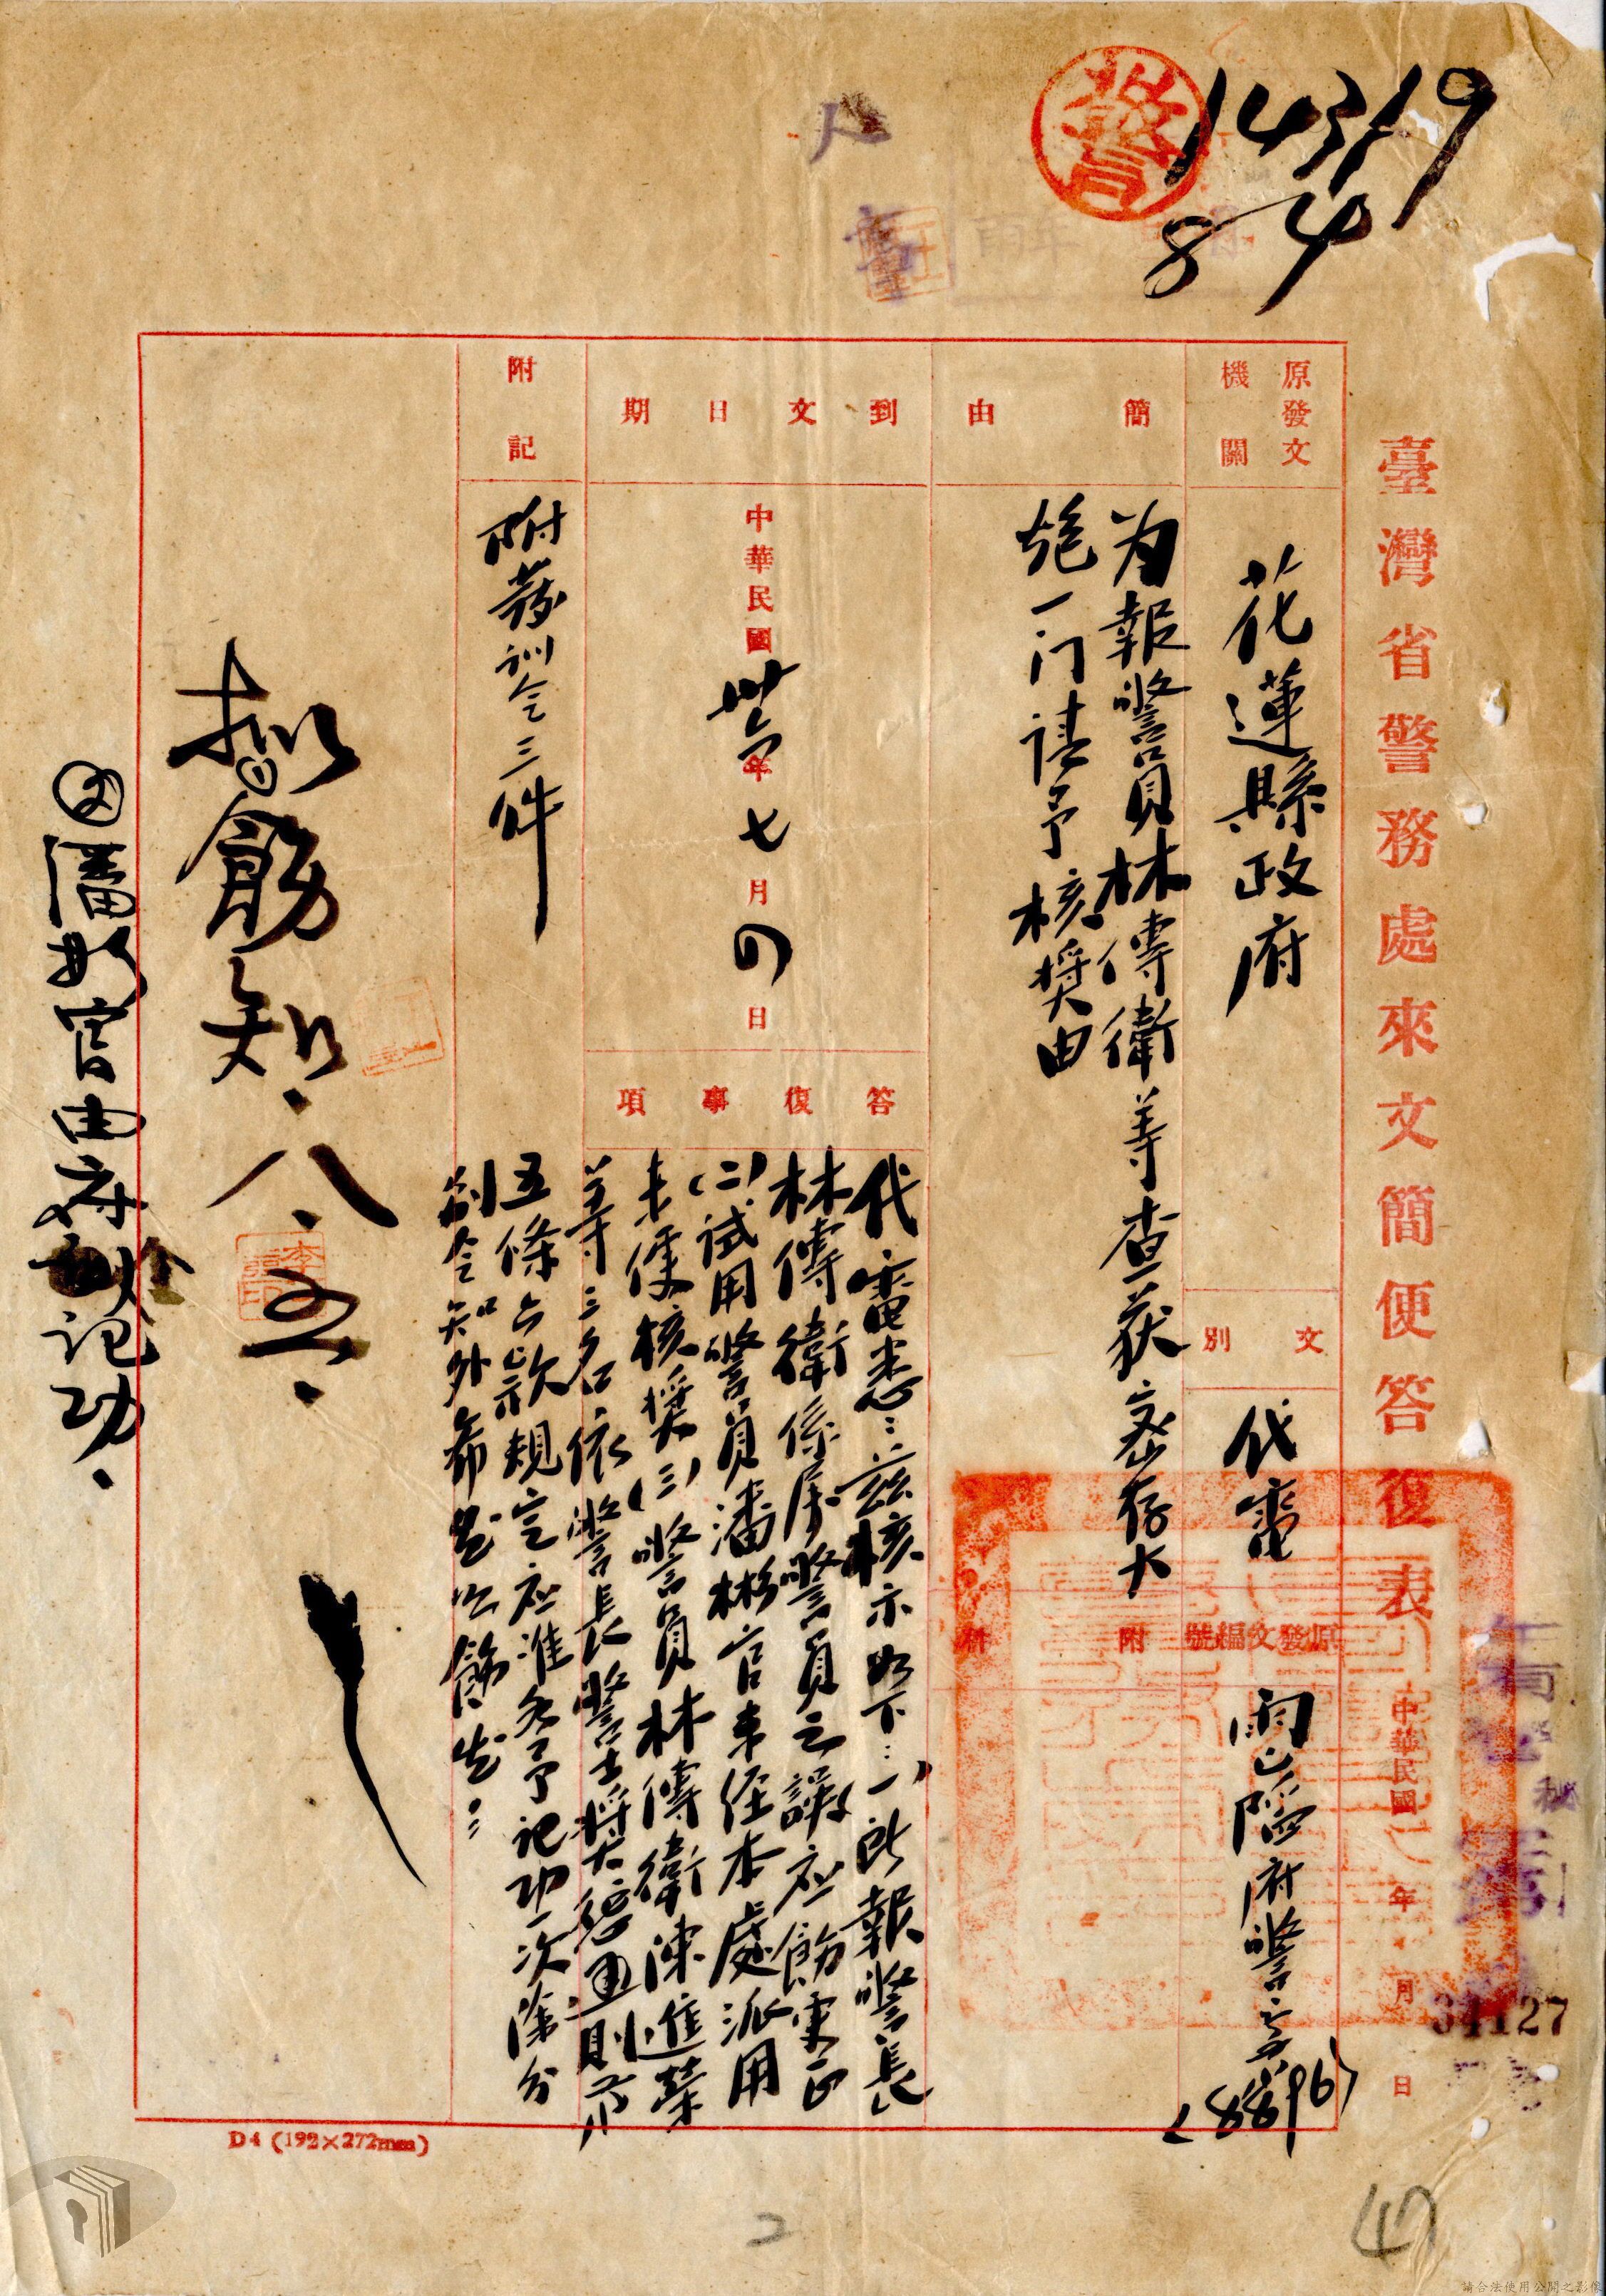 14319
8/4
警
臺灣省警務處來文簡便答復表
中華民國 年 月 日
34127
原發文機關
花蓮縣政府
文別
代電
原發文編號
府警
(8896)
簡由
为報警員林傳衛等查获密存大
炮一门請予核奨由
附件
到文日期
中華民國卅六年七月四日
答復事項
代電悉:兹核示如下:(一)所報警長
林傳衛係屬警員之誤应飭更正
(二)試用警員潘彬官未经本處派用
未便核奨(三)警員林傳衛陳進葉
等三名依警長警士奨懲通則第
五條六款規定应准各予記功一次除分
别令知外希
附記
附發訓令三件
擬①飭知.八.五.
②潘彬官由府記功.
D4 (192×272mm)
2
47
請合法使用公開之影像